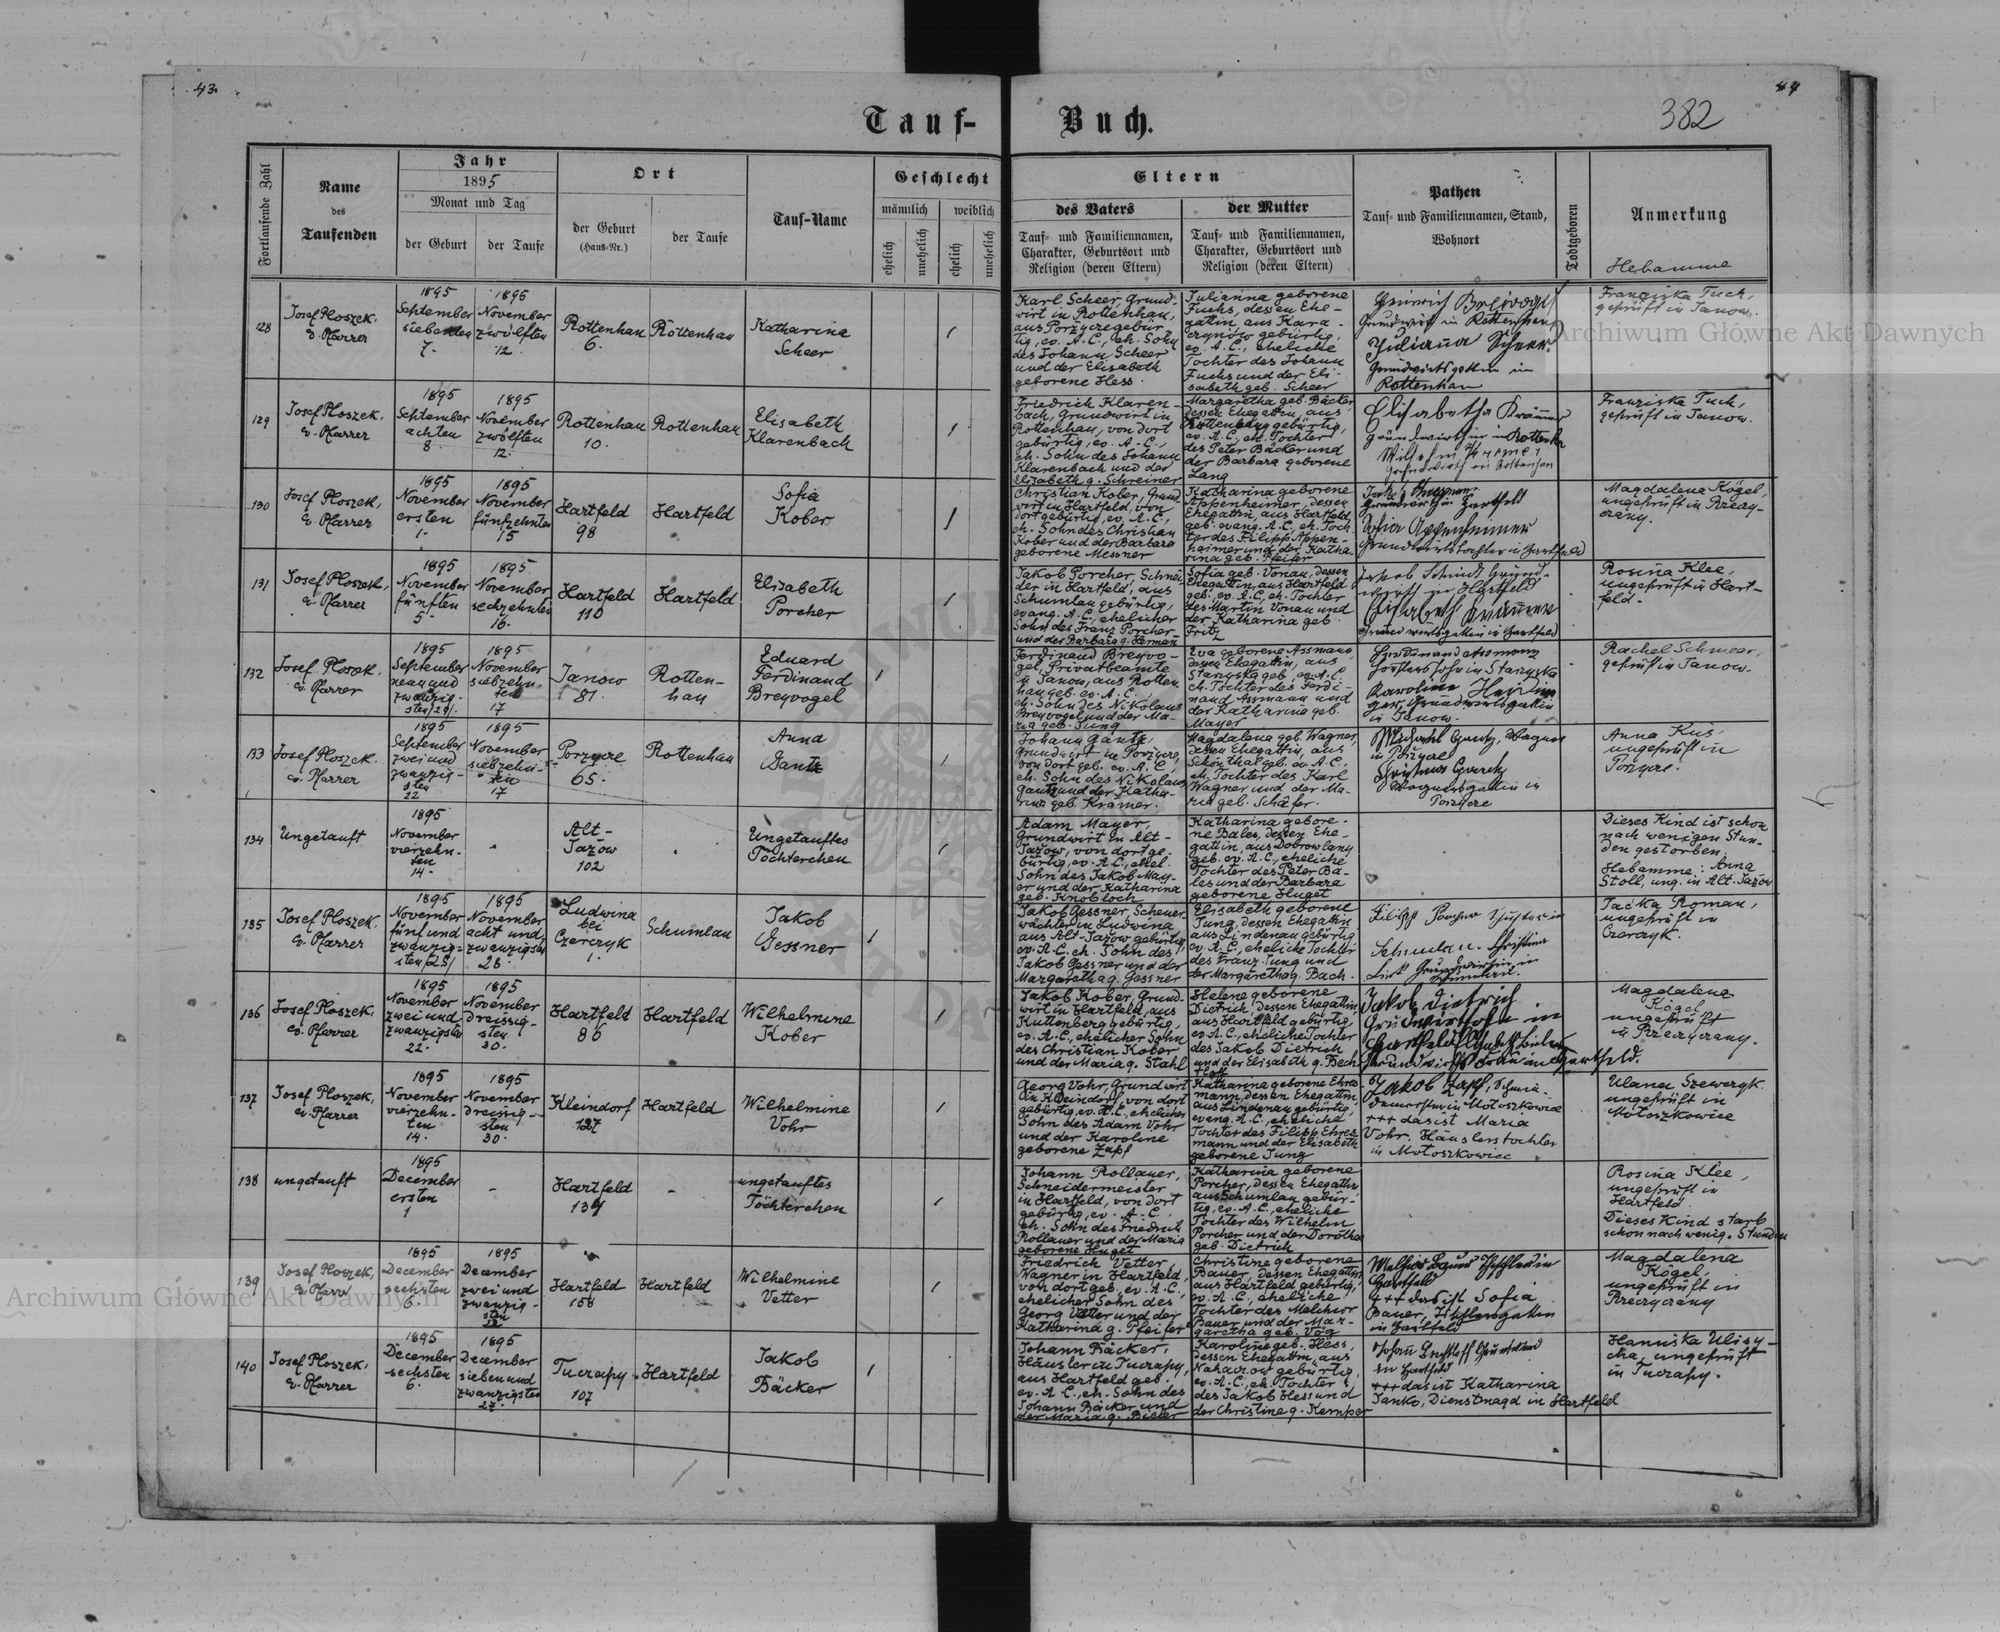 43.
44
382
Tauf-Buch.
Fortlaufende Zahl
Name
des
Taufenden
Jahr
1895
Monat und Tag
der Geburt
der Taufe
Ort
der Geburt
(Haus-Nr.)
der Taufe
Tauf-Name
Geschlecht
männlich
weiblich
ehelich
unehelich
ehelich
unehelich
Eltern
des Vaters
Tauf- und Familiennamen,
Charakter, Geburtsort und
Religion (deren Eltern)
der Mutter
Tauf- und Familiennamen,
Charakter, Geburtsort und
Religion (deren Eltern)
Pathen
Tauf- und Familiennamen, Stand,
Wohnort
Todtgeboren
Anmerkung
Hebamme
128
Josef Ploszek,
ev. Pfarrer
1895
September
siebenten
7.
1895
November
zwölften
12.
Rottenhan
6.
Rottenhan
Katharine
Scheer
1
Karl Scheer, Grund-
wirt in Rottenhan,
aus Porzyce gebür-
tig, ev. A.C., eh. Sohn
des Johann Scheer
und der Elisabeth
geborene Hess.
Julianna geborene
Fuchs, dessen Ehe-
gattin, aus
gebürtig,
ev. A.C., eheliche
Tochter des Johann
Fuchs und der Eli-
sabeth geb. Scheer
Heinrich
Grundwirt in Rottenhan
Julianna Scheer
Grundwirtsgattin in
Rottenhan
Franziska Tuch,
geprüft in Janow.
129
Josef Ploszek,
ev. Pfarrer
1895
September
achten
8.
1895
November
zwölften
12.
Rottenhan
10.
Rottenhan
Elisabeth
Klarenbach
1
Friedrich Klaren-
bach, Grundwirt in
Rottenhan, von dort
gebürtig, ev. A.C.,
eh. Sohn des Johann
Klarenbach und der
Elisabeth g. Schreiner
Margaretha geb. Bäcker
dessen Ehegattin, aus
Rottenhan gebürtig,
ev. A.C., eh. Tochter
des Peter Bäcker und
der Barbara geborene
Lang
Elisabetha Krämer
Grundwirthin in Rottenhan
Wilhelm
Grundwirth in Rottenhan
Franziska Tuch,
geprüft in Janow.
130
Josef Ploszek,
ev. Pfarrer
1895
November
ersten
1.
1895
November
fünfzehnten
15
Hartfeld
98
Hartfeld
Sofia
Kober
1
Christian Kober, Grund-
wirt in Hartfeld, von
dort gebürtig, ev. A.C.,
eh. Sohn des Christian
Kober und der Barbara
geborene Messner
Katharina geborene
Appenheimer, dessen
Ehegattin, aus Hartfeld
geb. evang. A.C. eh. Toch-
ter des Filipp Appen-
heimer und der Katha-
rina geb. Pfeifer
Grundwirth in Hartfeld
Sofia Appenheimer
Grundwirtstochter in Hartfeld
Magdalena Kögel,
ungeprüft in Przczy-
crany.
131
Josef Ploszek,
ev. Pfarrer
1895
November
fünften
5.
1895
November
sechzehnten
16.
Hartfeld
110
Hartfeld
Elisabeth
Porcher
1
Jakob Porcher, Schnei-
der in Hartfeld, aus
Schumlau gebürtig,
evang. A.C., ehelicher
Sohn des Franz Porcher
und der Barbara g. Herman
Sofia geb. Vonau, dessen
Ehegattin, aus Hartfeld
geb. ev. A.C., eh. Tochter
des Martin Vonau und
der Katharina geb.
Fritz
Jakob Schmidt Grund-
wirth in Hartfeld
Elisabeth Krämer
Grundwirtsgattin in Hartfeld
Rosina Klee,
ungeprüft in Hart-
feld.
132
Josef Ploszek,
ev. Pfarrer
1895
September
neun und
zwanzig-
sten /29/.
1895
November
siebzehn-
ten
17
Janow
81.
Rotten-
han
Eduard
Ferdinand
Breyvogel
1
Ferdinand Breyvo-
gel, Privatbeamte
in Janow, aus Rotten-
han geb. ev. A.C.,
eh. Sohn des Nikolaus
Breyvogel und der Ma-
ria geb. Jung
Eva geborene Assmann,
dessen Ehegattin, aus
Starzyska geb., ev. A.C.
eh. Tochter des Ferdi-
nand Assmann und
der Katharina geb.
Mayer
Ferdinand Assmann
Försterssohn in Starzyska
Karoline
Grundwirtsgattin
in Janow.
Rachel Schmeer,
geprüft in Janow.
133
Josef Ploszek,
ev. Pfarrer
1895
September
zwei und
zwanzig-
sten
22
1895
November
siebzehn-
ten
17
Porzyce
65.
Rottenhan
Anna
Gantz
1
Johann Gantz,
Grundwirt in Porzyce,
von dort geb. ev. A.C.,
eh. Sohn des Nikolaus
Gantz und der Katha-
rina geb. Krämer.
Magdalena geb. Wagner,
dessen Ehegattin, aus
Schönthal geb. ev. A.C.,
eh. Tochter des Karl
Wagner und der Ma-
ria geb. Schäfer.
Michael Gantz, Wagner
in Porzyce
Wagnersgattin in
Porzyce
Anna Kus,
ungeprüft in
Porzyce.
134
Ungetauft
1895
November
vierzehn-
ten
14.
Alt-
Jazow
102
Ungetauftes
Töchterchen
1
Adam Mayer,
Grundwirt in Alt-
Jazow, von dort ge-
bürtig, ev. A.C., ehel.
Sohn des Jakob May-
er und der Katharina
geb. Knobloch
Katharina gebore-
ne Bales, dessen Ehe-
gattin, aus Dobrowlany
geb. ev. A.C., eheliche
Tochter des Peter Ba-
les und der Barbara
geborene Huget
Dieses Kind ist schon
nach wenigen Stun-
den gestorben.
Hebamme: Anna
Stoll, ung. in Alt-Jazow
135
Josef Ploszek,
ev. Pfarrer
1895
November
fünf und
zwanzig-
sten /25/
1895
November
acht und
zwanzigsten
28.
Ludwina
bei
Czerczyk
1.
Schumlau
Jakob
Gessner
1
Jakob Gessner, Scheuer-
wächter in Ludwina
aus Alt-Jazow gebürtig,
ev. A.C. eh. Sohn des
Jakob Gessner und der
Margaretha g. Gessner
Elisabeth geborene
Jung, dessen Ehegattin,
aus Lindenau gebürtig
ev. A.C., eheliche Tochter
des Franz Jung und
der Margaretha g. Bach.
Filipp Porcher Schuster in
Schumlau. Christina
Grundwirtin in
Schumlau.
Tacka Roman,
ungeprüft in
Czerczyk.
136
Josef Ploszek,
ev. Pfarrer
1895
November
zwei und
zwanzigsten
22.
1895
November
dreissig-
sten
30.
Hartfeld
86
Hartfeld
Wilhelmine
Kober
1
Jakob Kober, Grund-
wirt in Hartfeld, aus
Kuttenberg gebürtig,
ev. A.C., ehelicher Sohn
des Christian Kober
und der Maria g. Stahl
Helene geborene
Dietrich, dessen Ehegattin,
aus Hartfeld gebürtig,
ev. A.C., eheliche Tochter
des Jakob Dietrich
und der Elisabeth g. Bech-
tloff
Jakob Dietrich
Grundwirthsohn in
Hartfeld
Grundwirthsfrau in Hartfeld.
Magdalena
Kögel
ungeprüft
in Przczycrany.
137
Josef Ploszek,
ev. Pfarrer
1895
November
vierzehn-
ten
14.
1895
November
dreissig-
sten
30.
Kleindorf
127
Hartfeld
Wilhelmine
Vohr
1
Georg Vohr, Grundwirt
in Kleindorf, von dort
gebürtig, ev. A.C., ehelicher
Sohn des Adam Vohr
und der Karoline
geborene Zapf
Katharina geborene Ehres-
mann, dessen Ehegattin,
aus Lindenau gebürtig,
evang. A.C., eheliche
Tochter des Filipp Ehres-
mann und der Elisabeth
geborene Jung
Jakob Zapf, Schmie-
demeister in Mołoszkowice
+++ das ist Maria
Vohr, Häuslerstochter
in Mołoszkowice
Ulana Szewczyk
ungeprüft in
Mołoszkowice
138
ungetauft
1895
December
ersten
1
-
Hartfeld
134
-
ungetauftes
Töchterchen
1
Johann Rollauer,
Schneidermeister
in Hartfeld, von dort
gebürtig, ev. A.C.,
eh. Sohn des Friedrich
Rollauer und der Maria
geborene Huget
Katharina geborene
Porcher, dessen Ehegattin,
aus Schumlau gebür-
tig, ev. A.C., eheliche
Tochter des Wilhelm
Porcher und der Dorothea
geb. Dietrich
Rosina Klee,
ungeprüft in
Hartfeld.
Dieses Kind starb
schon nach wenig. Stunden
139
Josef Ploszek,
ev. Pfarrer
1895
December
sechsten
6.
1895
December
zwei und
zwanzig-
sten
22
Hartfeld
158
Hartfeld
Wilhelmine
Vetter
1
Friedrich Vetter
Wagner in Hartfeld,
von dort geb., ev. A.C.,
ehelicher Sohn des
Georg Vetter und der
Katharina g. Pfeifer
Christine geborene
Bauer, dessen Ehegattin,
aus Hartfeld gebürtig,
ev. A.C., eheliche
Tochter des Melchior
Bauer und der Mar-
garetha geb. Väg
Melchior Bauer Tischler in
Hartfeld
+++ das ist Sofia
Bauer, Tischlersgattin
in Hartfeld
Magdalena
Kögel
ungeprüft in
Przczycrany
140
Josef Ploszek,
ev. Pfarrer
1895
December
sechsten
6.
1895
December
sieben und
zwanzigsten
27.
Tuczapy
107
Hartfeld
Jakob
Bäcker
1
Johann Bäcker,
Häusler in Tuczapy,
aus Hartfeld geb.,
ev. A.C., eh. Sohn des
Johann Bäcker und
der Maria g. Bieler
Karoline geb. Hess,
dessen Ehegattin, aus
Nahaczow gebürtig,
ev. A.C., eh. Tochter
des Jakob Hess und
der Christine g. Kemper
Johann Bechtloff Grundwirt
in Hartfeld
+++ das ist Katharina
Janko, Dienstmagd in Hartfeld
Hanuska Ulicy-
cha, ungeprüft
in Tuczapy.
Archiwum Główne Akt Dawnych
Archiwum Główne Akt Dawnych